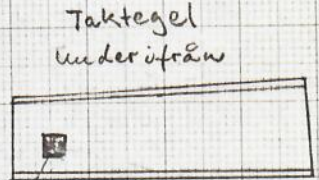 Taktegel
underifrån